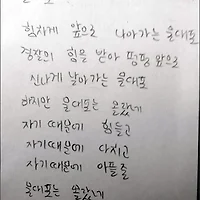 힘차게 앞으로 나아가는 물대포
경찰의 힘을 받아 펑펑 앞으로
신나게 날아가는 물대포
하지만 물대포는 몰랐네
자기 때문에 힘들고
자기 때문에 다치고
자기 때문에 아플줄
물대포는 몰랐네